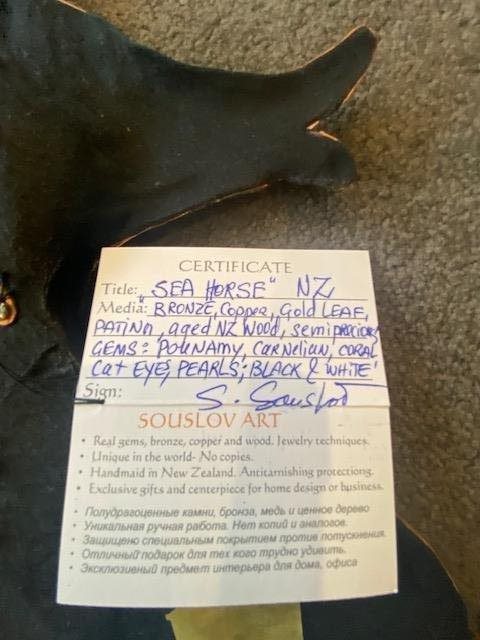 CERTIFICATE
Title: "SEA HORSE" NZ
Media: BRONZE, Copper, Gold LEAF,
PATINA, aged NZ Wood, semiprecious
GEMS: POUNAMY, CARNELIAN, CORAL
Cat EYE, PEARLS; BLACK & WHITE
Sign: S. Souslov
SOUSLOV ART
• Real gems, bronze, copper and wood. Jewelry techniques.
• Unique in the world- No copies.
• Handmaid in New Zealand. Antitarnishing protectiong.
• Exclusive gifts and centerpiece for home design or business.
• Полудрагоценные камни, бронза, медь и ценное дерево
• Уникальная ручная работа. Нет копий и аналогов.
• Защищено специальным покрытием против потускнения.
• Отличный подарок для тех кого трудно удивить.
• Эксклюзивный предмет интерьера для дома, офиса